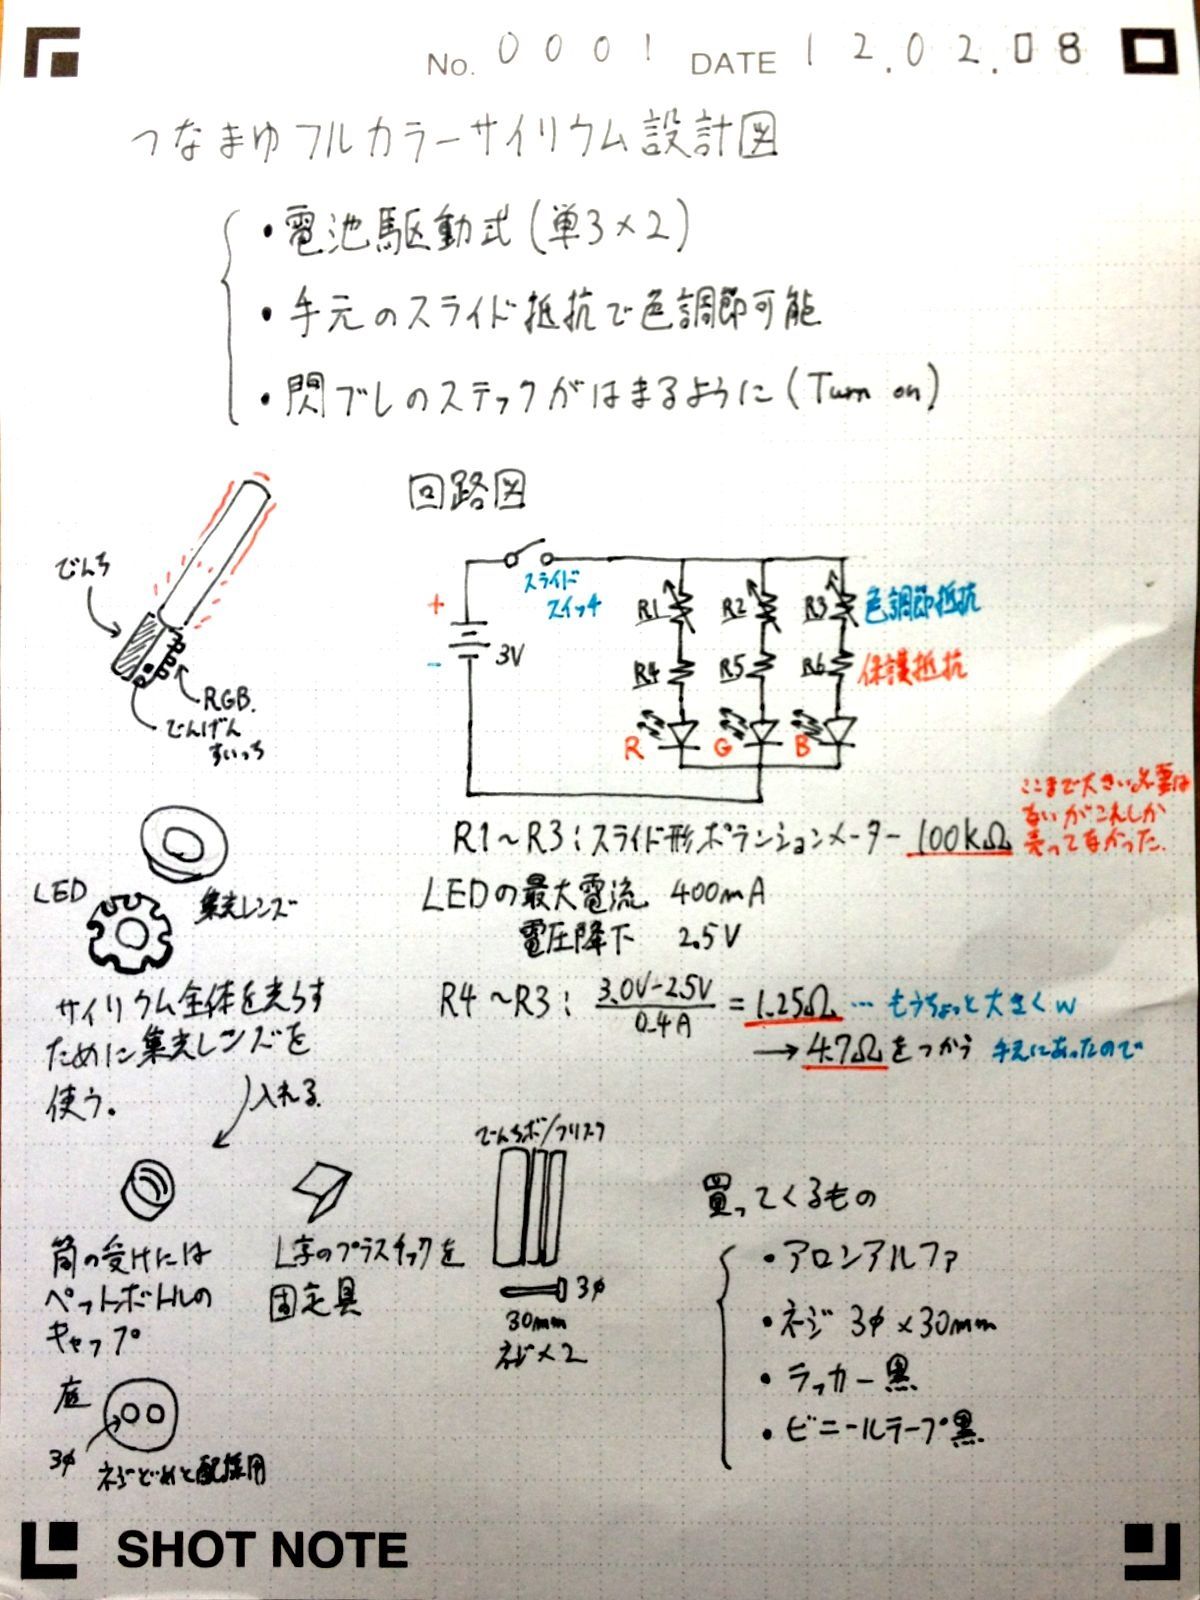 No. 0001 DATE 12.02.08
つなまゆフルカラーサイリウム設計図
・電池駆動式(単3×2)
・手元のスライド抵抗で色調節可能
・閃ブレのスティックがはまるように(Turn on)
でんち
RGB.
でんげん
すいっち
回路図
スライド
スイッチ
+
-
3V
R1
R2
R3
色調節抵抗
R4
R5
R6
保護抵抗
R
G
B
R1〜R3:スライド形ポテンションメーター 100kΩ
ここまで大きい必要は
ないがこれしか
売ってなかった.
LEDの最大電流 400mA
電圧降下 2.5V
R4〜R3: 3.0V-2.5V / 0.4A = 1.25Ω … もうちょっと大きくw
→ 4.7Ωをつかう 手元にあったので
集光レンズ
LED
サイリウム全体を光らす
ために集光レンズを
使う。
入れる.
筒の受けには
ペットボトルの
キャップ
L字のプラスチックを
固定具
でんちボ/フリスク
3φ
30mm
ネジ×2
底
3φ
ネジどめと配線用
買ってくるもの
・アロンアルファ
・ネジ 3φ×30mm
・ラッカー黒
・ビニールテープ黒
SHOT NOTE